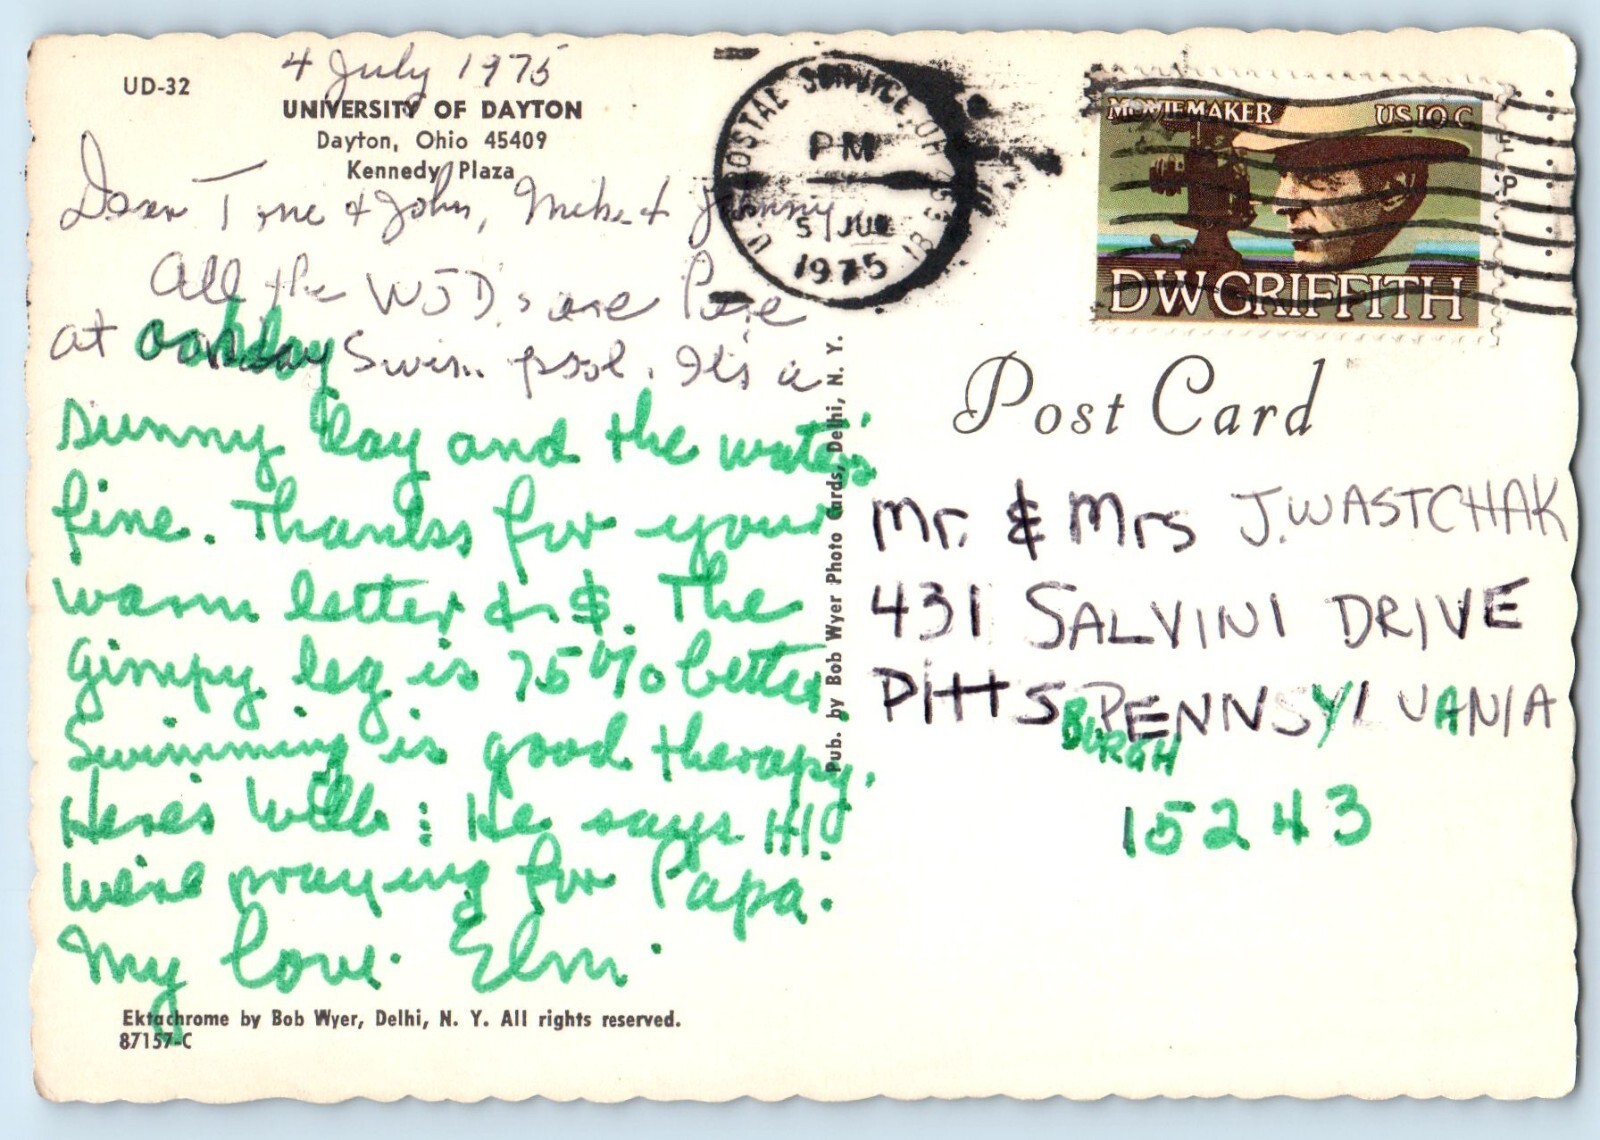 UD-32
4 July 1975
UNIVERSITY OF DAYTON
Dayton, Ohio 45409
Kennedy Plaza
Dear & John, Mike &
All the WJD's are
at Swim pool. It's a
sunny day and the water's
fine. Thanks for your
warm letter & $. The
gimpy leg is 75% better
Swimming is good therapy.
Here's Will: He says HI!
We're praying for Papa.
My love. Elm
Ektachrome by Bob Wyer, Delhi, N. Y. All rights reserved.
87157-C
Pub. by Bob Wyer Photo Cards, Delhi, N. Y.
U.S. POSTAL SERVICE, OH
PM
5 JUL
1975
MOVIEMAKER US 10 C
DW GRIFFITH
Post Card
Mr. & Mrs J. WASTCHAK
431 SALVINI DRIVE
PITTSBURGH PENNSYLVANIA
15243